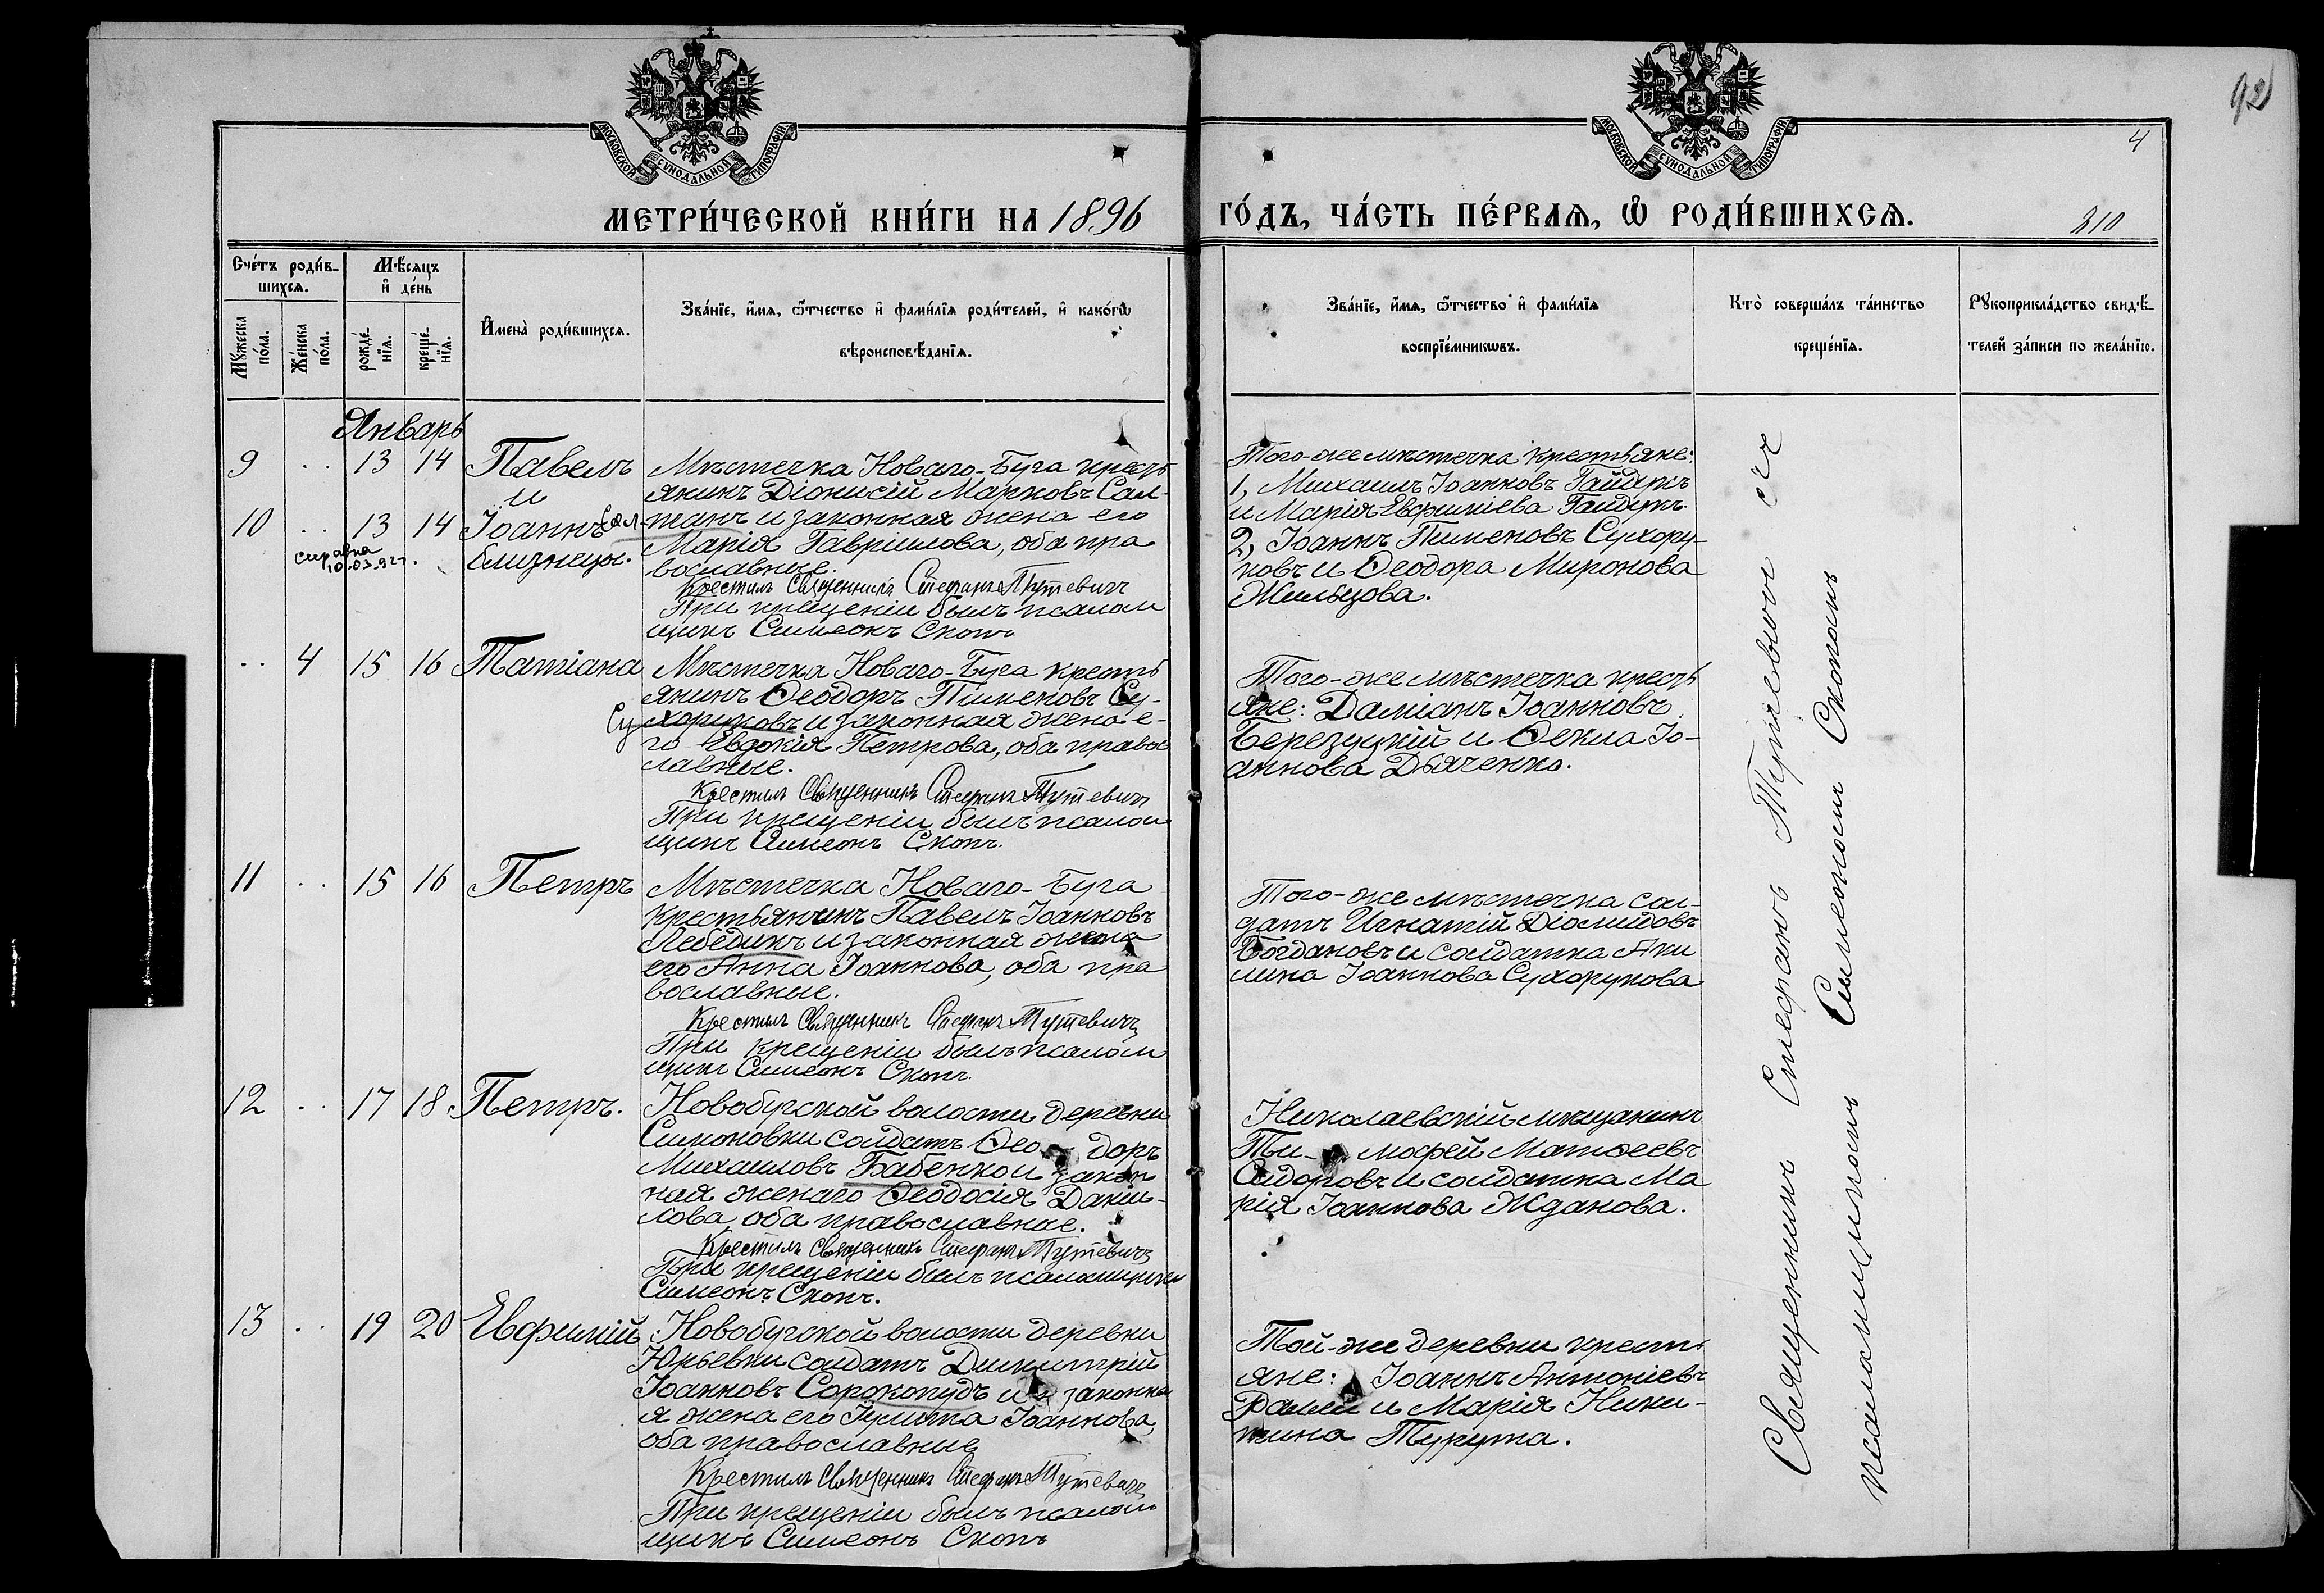 92
4
МОСКОВСКОЙ СѴНОДАЛЬНОЙ ТИПОГРАФІИ
МОСКОВСКОЙ СѴНОДАЛЬНОЙ ТИПОГРАФІИ
МЕТРИ́ЧЕСКОЙ КНИ́ГИ НА 1896 ГО́ДЪ, ЧА́СТЬ ПЕ́РВАѦ, Ѽ РОДИ́ВШИХСѦ.
310
Сче́тъ роди́в-
шихсѧ.
Мꙋ́жеска
по́ла.
Же́нска
по́ла.
Мѣ́сѧцъ
и҆ де́нь
рожде́-
нїѧ.
креще́-
нїѧ.
И҆мена̀ роди́вшихсѧ.
Зва́нїе, и҆́мѧ, ѻ҆́тчество и҆ фами́лїѧ роди́телей, и҆ како́гѡ
вѣроисповѣ́данїѧ.
Зва́нїе, и҆́мѧ, ѻ҆́тчество и҆ фами́лїѧ
воспрїе́мникѡвъ.
Кто̀ соверша́лъ та́инство
креще́нїѧ.
Рꙋкоприкла́дство свидѣ́-
телей за́писи по жела́нїю.
Январь
9 .. 13 14 Павелъ
и
10 .. 13 14 Іоаннъ
близнецы.
справка
10.03.92г.
Мѣстечка Новаго-Буга кресть
янинъ Діонисій Марковъ Сал-
танъ и законная жена его
Марія Гавріилова, оба пра
вославные.
Крестилъ Священникъ Стефанъ Тутевичъ
При крещеніи былъ псалом
щикъ Симеонъ Скопъ
Того-же мѣстечка крестьяне:
1, Михаилъ Іоанновъ Гайдукъ
и Марія Евфиміева Гайдукъ.
2, Іоаннъ Пименовъ Сухору-
ковъ и Ѳеодора Миронова
Жильцова.
.. 4 15 16 Татіана
Мѣстечка Новаго-Буга кресть
янинъ Ѳеодоръ Пименовъ Су-
хоруковъ и законная жена е-
го Евдокія Петрова, оба право
славные.
Крестилъ Священникъ Стефанъ Тутевичъ
При крещеніи былъ псалом
щикъ Симеонъ Скопъ.
Того-же мѣстечка кресть
яне: Даміанъ Іоанновъ
Березуцкій и Ѳекла Іо-
аннова Дьяченко.
11 .. 15 16 Петръ
Мѣстечка Новаго-Буга
крестьянинъ Павелъ Іоанновъ
Лебединъ и законная жена
его Анна Іоаннова, оба пра
вославные.
Крестилъ Священникъ Стефанъ Тутевичъ
При крещеніи былъ псалом
щикъ Симеонъ Скопъ.
Того-же мѣстечка сол-
датъ Игнатій Діомидовъ
Богдановъ и солдатка Аки
лина Іоаннова Сухорукова
12 .. 17 18 Петръ.
Новобугской волости деревни
Симоновки солдатъ Ѳео-доръ
Михаиловъ Бабенко и закон
ная жена го Ѳеодосія Дани-
лова, оба православные.
Крестилъ Священникъ Стефанъ Тутевичъ
При крещеніи былъ псаломщикъ
Симеонъ Скопъ.
Николаевскій мѣщанинъ
Ти-мофей Матѳеевъ
Сидоровъ и солдатка Ма
рія Іоаннова Жданова.
13 .. 19 20 Евфимій
Новобугской волости деревни
Юрьевки солдатъ Димитрій
Іоанновъ Сорокопудъ и законна
я жена его Іулита Іоаннова,
оба православные
Крестилъ Священникъ Стефанъ Тутевичъ
При крещеніи былъ псалом
щикъ Симеонъ Скопъ
Той-же деревни кресть
яне: Іоаннъ Антоніевъ
и Марія Ники-
тина Турута.
Священникъ Стефанъ Тутевичъ съ
псаломщикомъ Симеономъ Скопомъ